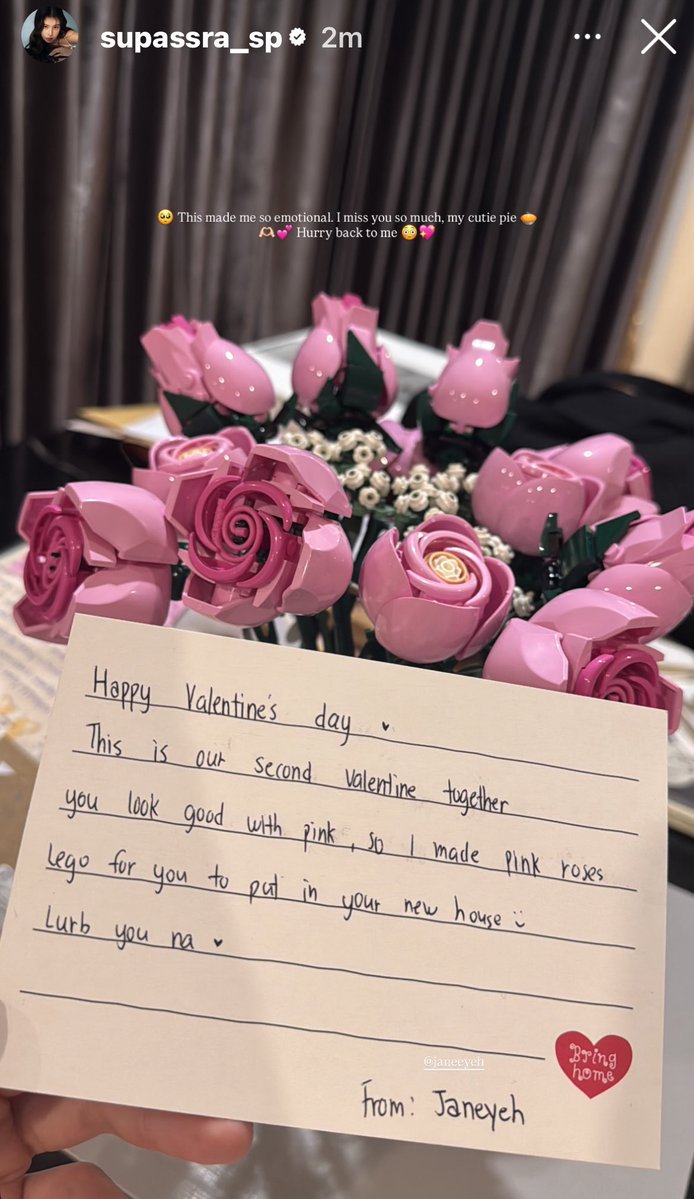 supassra_sp 2m
🥺 This made me so emotional. I miss you so much, my cutie pie 🥧
🫶🏼💕 Hurry back to me 😳💖
Happy Valentine's day ♥
This is our second Valentine together
you look good with pink, so I made pink roses
lego for you to put in your new house :)
Lurb you na ♥
@janeeyeh
Bring
home
From: Janeyeh